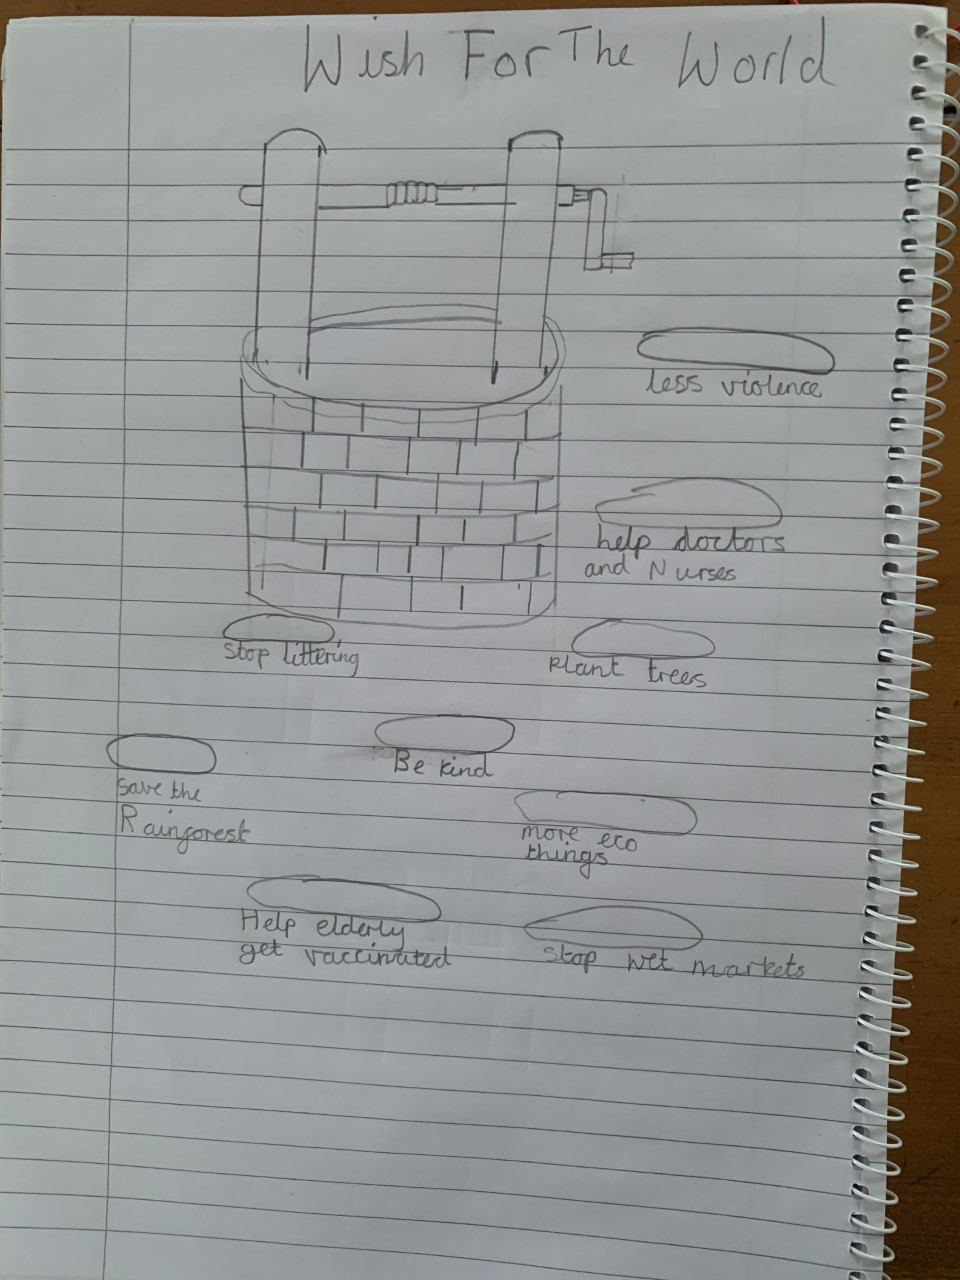 Wish For The World
less violence
help doctors
and Nurses
Stop littering
Plant trees
Be kind
Save the
Rainforest
more eco
things
Help elderly
get vaccinated
Stop wet markets